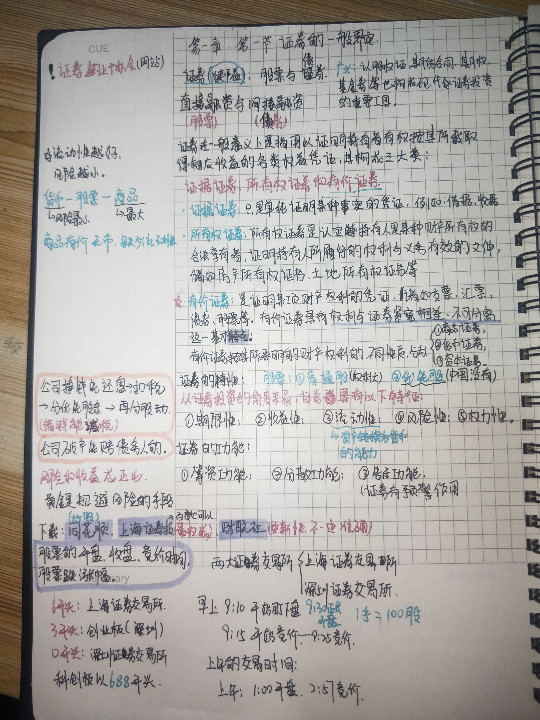 CUE
第一章 第一节 证券的一般界定
!证券网上协会(网站)
证券(
): 股票与债券.
广义: 认股权证,期货合同,期权,
基金券等也构成现代证券投资
的重要工具.
直接融资与间接融资
股票 (债券)
证券在一般意义上是指用以证明持有者有权按其所载取
得相应收益的各类权益凭证,其构成三大类:
证据证券,所有权证券和有价证券
流动性越好,
风险越小.
货币—股票—商品
↳风险最小 ↳最大
商品有价无市,缺少流动性
·证据证券: 只是单纯证明某种事实的凭证,例如:借据,收据
·所有权证券: 所有权证券是认定持有人是某种财产所有权的
合法享有者,证明持有人所履行的权利与义务有效的文件,
诸如房产所有权证书,土地所有权证书等
☆有价证券: 是证明某项财产权利的凭证,
如支票,汇票,
债券,股票等. 有价证券具有权利与证券
相连,不可分离
这一基
有价证券按其所表明的财产权利的不同性质,分为
①商品证券,
②货币证券,
③资本证券.
证券的特性: 股票: ①普通股(权利大) ②优先股(中国没有)
从证券投资的角度来看,证券
具有以下特征:
①期限性; ②收益性; ③流动性; ④风险性; ⑤权力性.
↳资产转换为货币
的能力
公司挣钱先还息→扣税
→分优先股息→再分股动.
(借钱能避税)
公司破产先赔债务人的.
风险和收益成正比.
证券的功能:
①筹资功能; ②分散功能; ③告在功能,
(证券有预警作用
黄金是规避风险的手段
下载: 同花顺, 上海证券报
财联社
股票的开盘,收盘,竞价时间,
股票涨幅.
两大证券交易所 { 上海证券交易所
深圳证券交易所.
6开头: 上海证券交易所.
3开头: 创业板(深圳)
0开头: 深圳证券交易所
科创板以688开头.
早上 9:10
9:30正式
开盘
1手=100股
9:15 开始竞价—9:25竞价.
上午的交易时间:
上午: 1:00开盘, 2:57竞价.